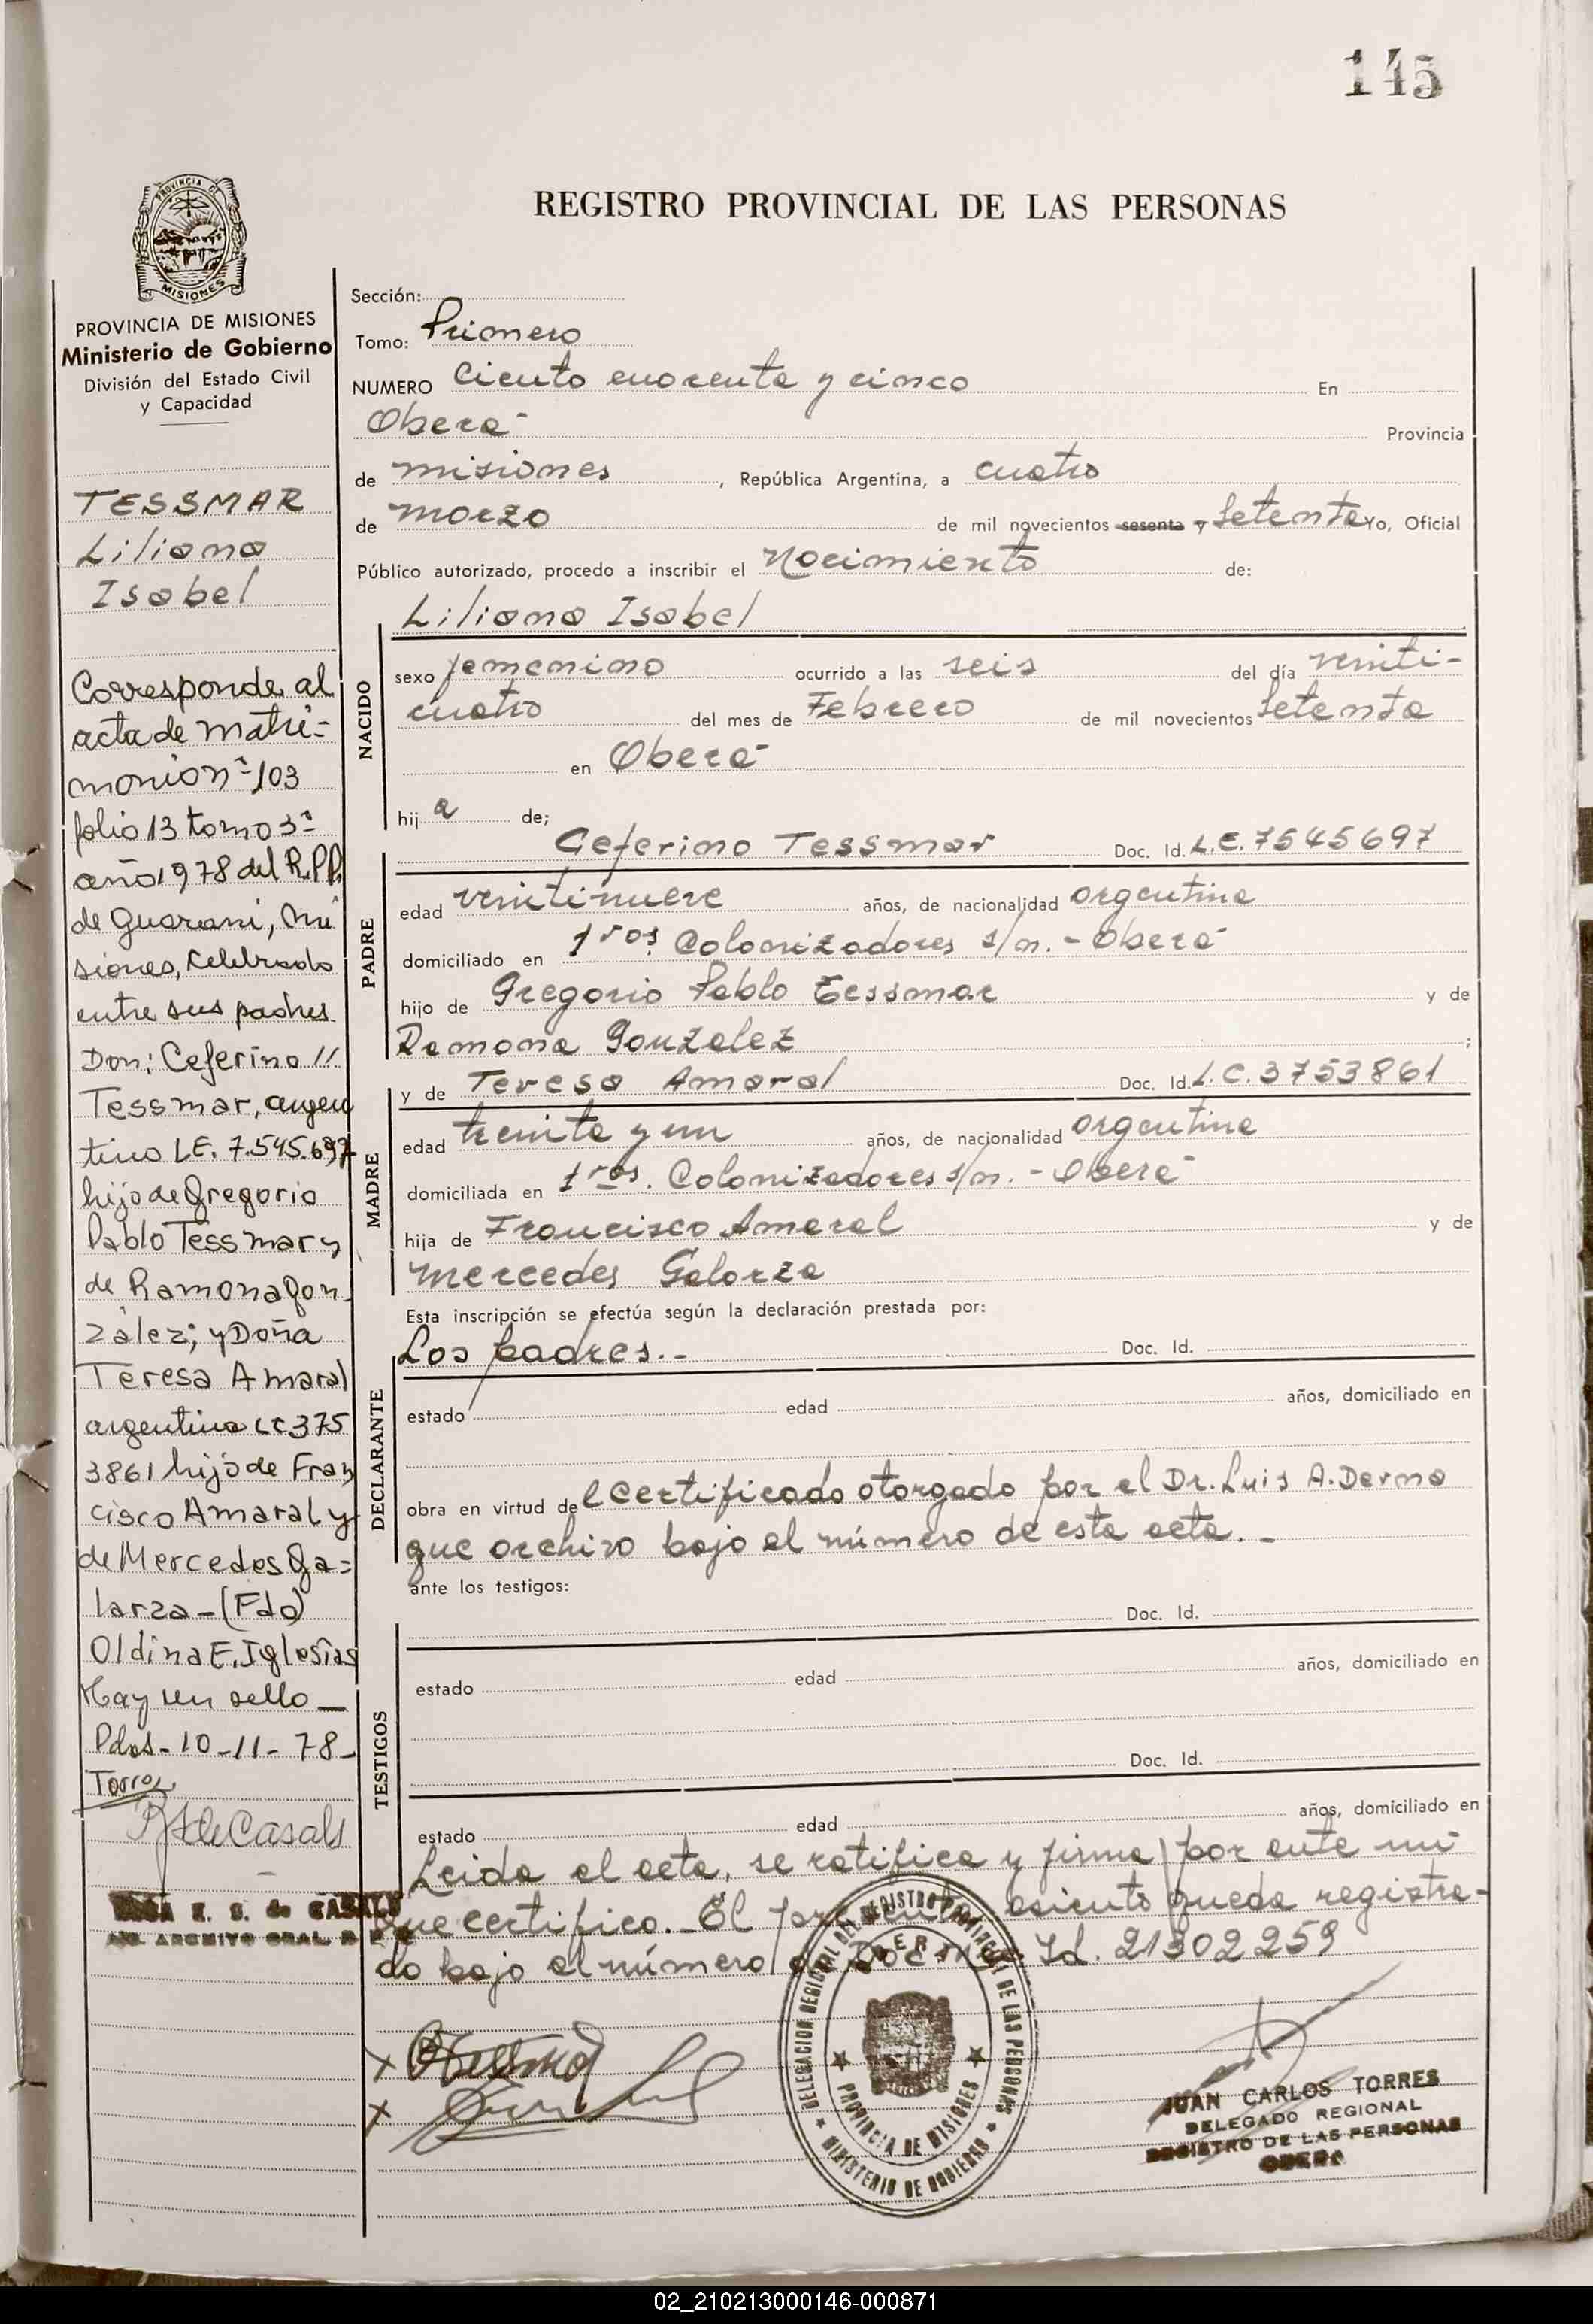 145
PROVINCIA DE
MISIONES
PROVINCIA DE MISIONES
Ministerio de Gobierno
División del Estado Civil
y Capacidad
TESSMAR
Liliana
Isabel
Corresponde al
acta de matri-
monio nº 103
folio 13 tomo 3º
año 1978 del R.P.P.
de Guarani, Mi
siones, celebrado
entre sus padres
Don: Ceferino //
Tessmar, argen
tino L.E. 7.545.697
hijo de Gregorio
Pablo Tessmar y
de Ramona Gon
zález; y Doña
Teresa Amaral
argentina LC 375
3861 hija de Fran
cisco Amaral y
de Mercedes Ga=
larza - (Fdo)
Oldina E. Iglesias
Hay un sello _
Pdas - 10 - 11 - 78 -
Torres
R S de Casals
E. S. de CASALS
ARCHIVO GRAL. R. P.
REGISTRO PROVINCIAL DE LAS PERSONAS
Sección:
Tomo: Primero
NUMERO Ciento cuarenta y cinco En
Oberá Provincia
de misiones, República Argentina, a cuatro
de marzo de mil novecientos sesenta y setenta Yo, Oficial
Público autorizado, procedo a inscribir el Nacimiento de:
Liliana Isabel
NACIDO
sexo femenino ocurrido a las seis del día veniti-
cuatro del mes de Febrero de mil novecientos setenta
en Oberá
hij a de;
Ceferino Tessmar Doc. Id. L.E. 7545697
PADRE
edad venitinueve años, de nacionalidad argentina
domiciliado en 1ros Colonizadores s/n. - Oberá
hijo de Gregorio Pablo Tessmar y de
Ramona Gonzalez ;
y de Teresa Amaral Doc. Id. L.C. 3753861
MADRE
edad treinta y un años, de nacionalidad argentina
domiciliada en 1ros. Colonizadores s/n. - Oberá
hija de Francisco Amaral y de
Mercedes Galarza
Esta inscripción se efectúa según la declaración prestada por:
Los padres.- Doc. Id.
DECLARANTE
estado edad años, domiciliado en
obra en virtud del certificado otorgado por el Dr. Luis A. Derna
que archivo bajo el número de esta acta. -
ante los testigos:
Doc. Id.
TESTIGOS
estado edad años, domiciliado en
Doc. Id.
estado edad años, domiciliado en
Leida el acta, se ratifica y firma por ante mi
que certifico. - El presente asiento queda registra-
do bajo el número de Docme. Id. 21302259
DELEGACION REGIONAL DEL REGISTRO PROVINCIAL DE LAS PERSONAS
OBERA
PROVINCIA DE MISIONES
MINISTERIO DE GOBIERNO
JUAN CARLOS TORRES
DELEGADO REGIONAL
REGISTRO DE LAS PERSONAS
OBERA
02_210213000146-000871